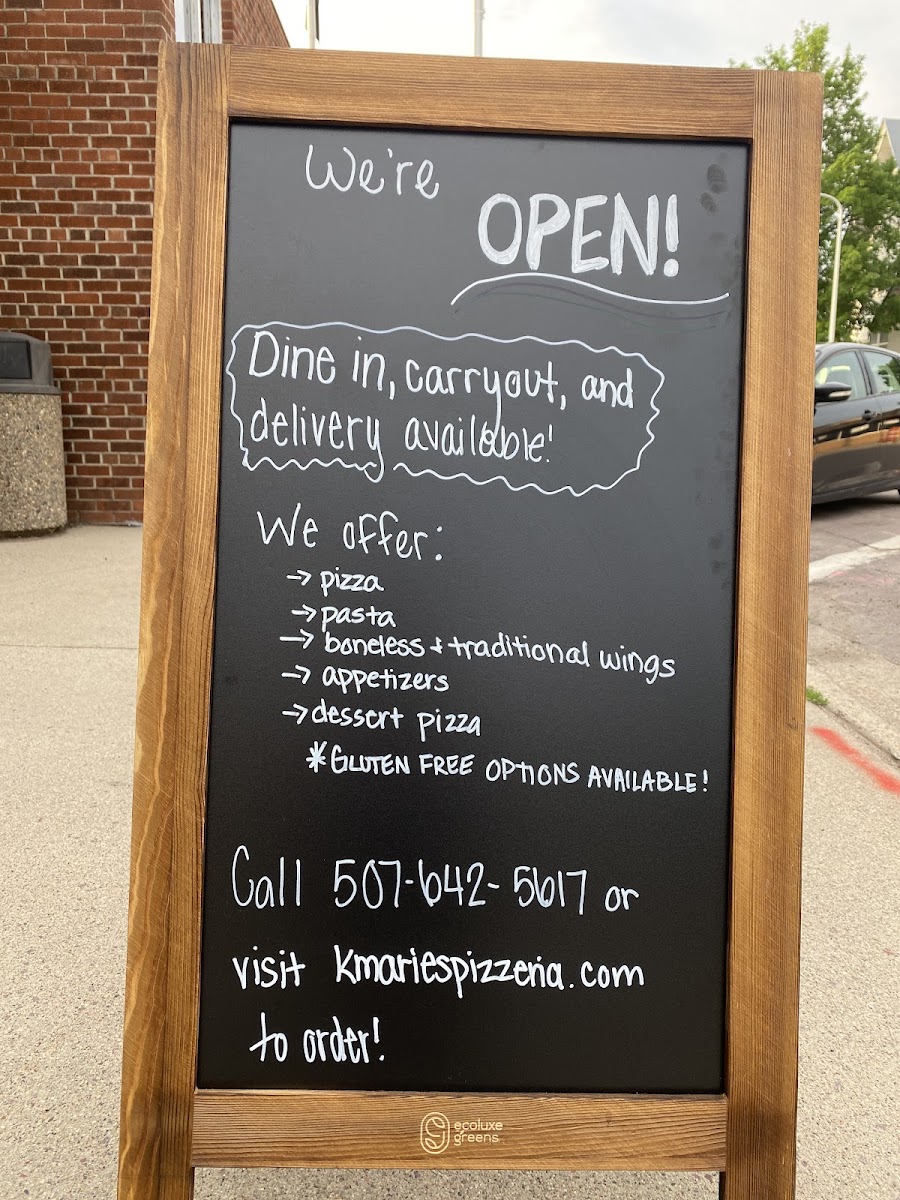 We're
OPEN!
Dine in, carryout, and
delivery available!
We offer:
→ pizza
→ pasta
→ boneless & traditional wings
→ appetizers
→ dessert pizza
*GLUTEN FREE OPTIONS AVAILABLE!
Call 507-642-5617 or
visit kmariespizzeria.com
to order!
ecoluxe
greens